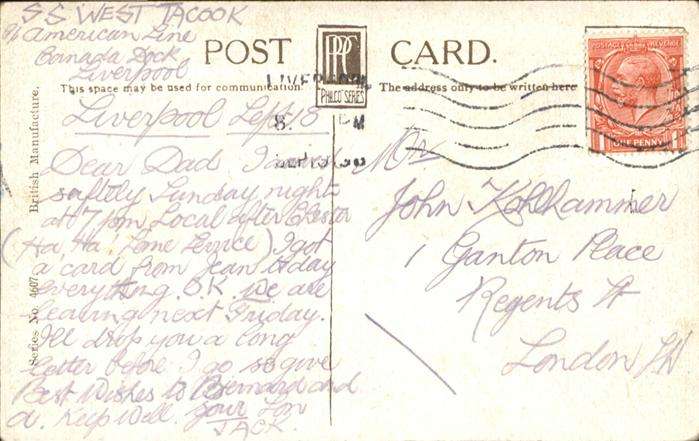 SS WEST TACOOK
% American Line
Canada Dock
Liverpool
POST CARD.
PPC
PHILCO SERIES
This space may be used for communication.
The address only to be written here
LIVERPOOL
8. PM
SEP 13
ONE PENNY
British Manufacture.
Series No. 4607
Liverpool Sept 13
Dear Dad I arrived
saftely Sunday night
at 7 pm Local after
(Ha, Ha! Some Service) I got
a card from Jean today
everything O.K. we are
leaving next Friday.
I'll drop you a long
letter before I go so give
Best Wishes to Bernard and
a. Keep Well. Your Son
JACK.
Mr
John Kohlhammer
1 Ganton Place
Regents St
London